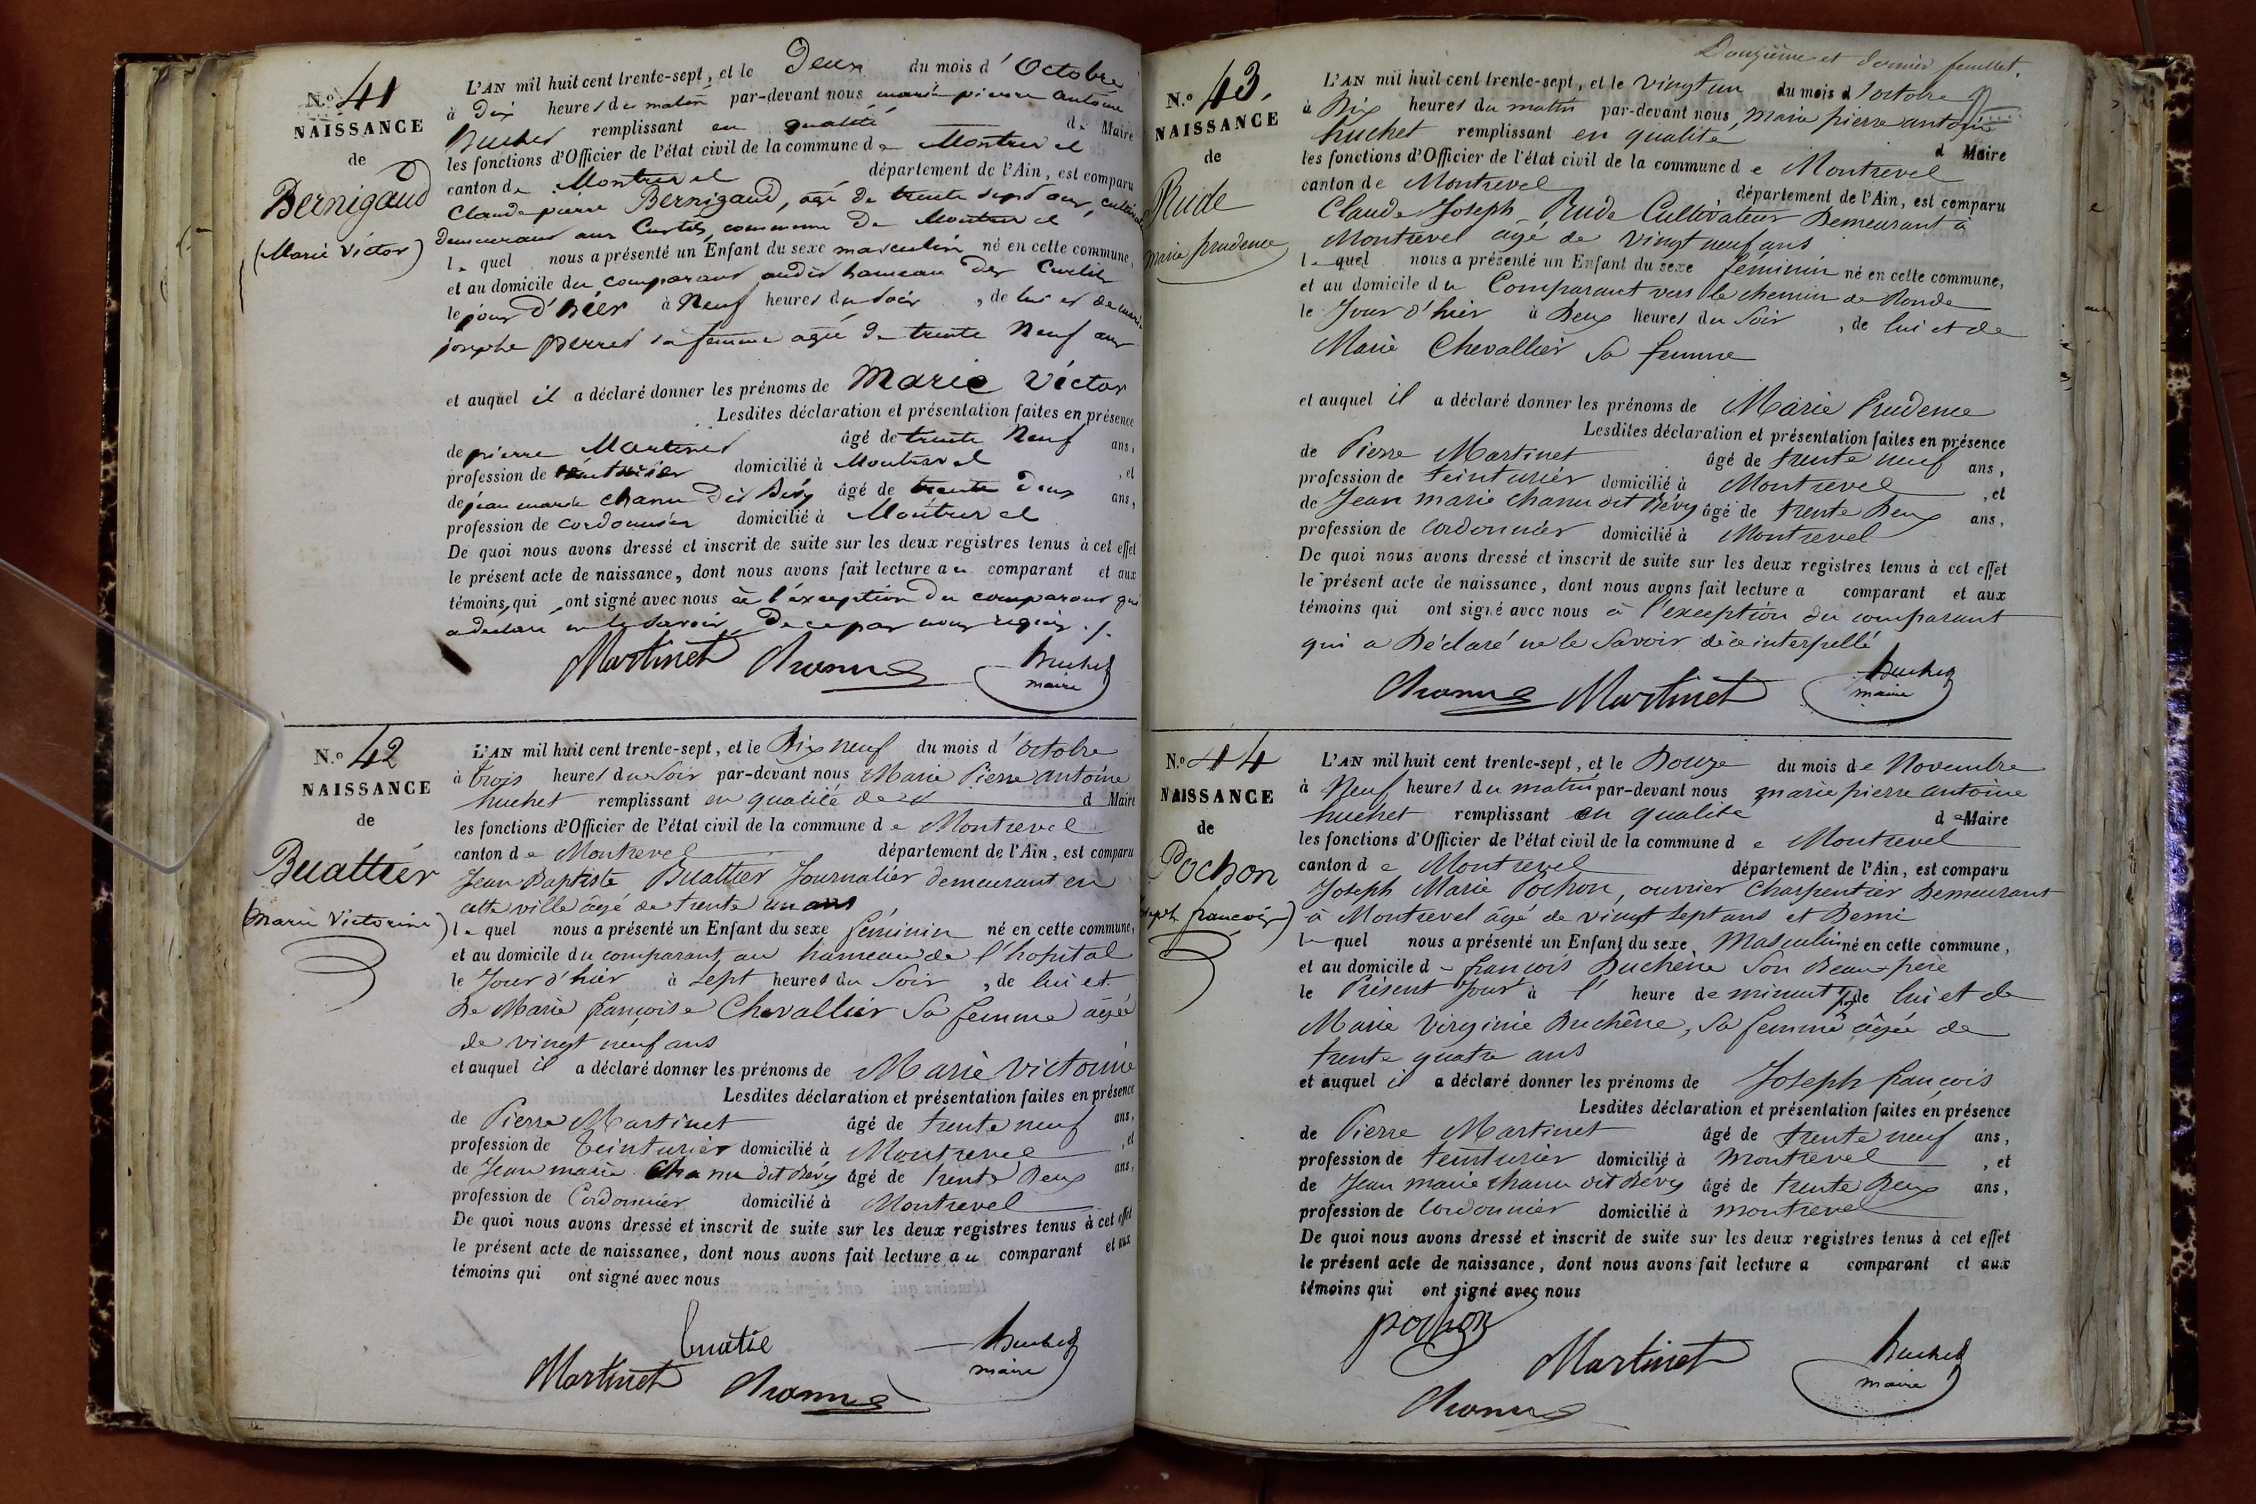 N.º 41
NAISSANCE
de
Bernigaud
(Marie Victor)
L'AN mil huit cent trente-sept, et le Deux du mois d'Octobre
à Dix heures du matin par-devant nous marie pierre antoine
huchet remplissant en qualité de Maire
les fonctions d'Officier de l'état civil de la commune de Montrevel
canton de Montrevel département de l'Ain, est comparu
Claude pierre Bernigaud, agé de trente sept ans, cultivateur
demeurant aux Curtils, commune de Montrevel
lequel nous a présenté un Enfant du sexe masculin né en cette commune,
et au domicile du comparant audit hameau des Curtils
le jour d'hier à Neuf heures du soir, de lui et de marie
josephe perret sa femme agée de trente Neuf ans
et auquel il a déclaré donner les prénoms de Marie Victor
Lesdites déclaration et présentation faites en présence
de pierre Martinet âgé de trente Neuf ans,
profession de teinturier domicilié à Montrevel, et
de jean marie chanu dit Bévy âgé de trente deux ans,
profession de cordonnier domicilié à Montrevel
De quoi nous avons dressé et inscrit de suite sur les deux registres tenus à cet effet
le présent acte de naissance, dont nous avons fait lecture au comparant et aux
témoins, qui ont signé avec nous à l'exception du comparant qui
a déclaré ne le savoir, de ce par nous requis ./.
Martinet Chanu huchet
maire
N.º 42
NAISSANCE
de
Buattier
(Marie Victorine)
L'AN mil huit cent trente-sept, et le Dix neuf du mois d'octobre
à trois heures du soir par-devant nous Marie Pierre antoine
huchet remplissant en qualité de d Maire
les fonctions d'Officier de l'état civil de la commune de Montrevel
canton de Montrevel département de l'Ain, est comparu
Jean Baptiste Buattier Journalier demeurant en
cette ville âgé de trente un ans
lequel nous a présenté un Enfant du sexe féminin né en cette commune,
et au domicile du comparant au hameau de l'hopital
le Jour d'hier à sept heures du Soir, de lui et
de Marie françoise Chevallier Sa femme agée
de vingt neuf ans
et auquel il a déclaré donner les prénoms de Marie Victorine
Lesdites déclaration et présentation faites en présence
de Pierre Martinet âgé de trente neuf ans,
profession de teinturier domicilié à Montrevel, et
de Jean marie Chanu dit Bévy âgé de trente Deux ans,
profession de Cordonnier domicilié à Montrevel
De quoi nous avons dressé et inscrit de suite sur les deux registres tenus à cet effet
le présent acte de naissance, dont nous avons fait lecture au comparant et aux
témoins qui ont signé avec nous
buatie huchet
Martinet Chanu maire
Douzième et dernier feuillet.
N.º 43.
NAISSANCE
de
Rude
marie prudence
L'AN mil huit cent trente-sept, et le vingt un du mois d'octobre
à Dix heures du matin par-devant nous marie pierre antoine
huchet remplissant en qualité d Maire
les fonctions d'Officier de l'état civil de la commune de Montrevel
canton de Montrevel département de l'Ain, est comparu
Claude Joseph Rude Cultivateur Demeurant à
Montrevel agé de vingt neuf ans
lequel nous a présenté un Enfant du sexe féminin né en cette commune,
et au domicile du Comparant vers le chemin de Ronde
le Jour d'hier à Deux heures du Soir, de lui et de
Marie Chevallier Sa femme
et auquel il a déclaré donner les prénoms de Marie Prudence
Lesdites déclaration et présentation faites en présence
de Pierre Martinet âgé de trente neuf ans,
profession de teinturier domicilié à Montrevel, et
de Jean marie chanu dit Bévy âgé de trente Deux ans,
profession de cordonnier domicilié à Montrevel
De quoi nous avons dressé et inscrit de suite sur les deux registres tenus à cet effet
le présent acte de naissance, dont nous avons fait lecture a comparant et aux
témoins qui ont signé avec nous à l'exception du comparant
qui a Déclaré ne le Savoir de ce interpellé
Chanu Martinet huchet
maire
N.º 44
NAISSANCE
de
Pochon
joseph françois)
L'AN mil huit cent trente-sept, et le Douze du mois de Novembre
à Neuf heures du matin par-devant nous marie pierre antoine
huchet remplissant en qualité de Maire
les fonctions d'Officier de l'état civil de la commune de Montrevel
canton de Montrevel département de l'Ain, est comparu
Joseph Marie Pochon, ouvrier Charpentier Demeurant
à Montrevel âgé de vingt sept ans et Demi
lequel nous a présenté un Enfant du sexe Masculin né en cette commune,
et au domicile de françois Duchêne Son Beau-père
le Présent Jour à l' heure de minuit, de lui et de
Marie Virginie Duchêne, Sa femme âgée de
trente quatre ans
et auquel il a déclaré donner les prénoms de Joseph françois
Lesdites déclaration et présentation faites en présence
de Pierre Martinet âgé de trente neuf ans,
profession de teinturier domicilié à Montrevel, et
de Jean marie chanu dit Bévy âgé de trente Deux ans,
profession de Cordonnier domicilié à Montrevel
De quoi nous avons dressé et inscrit de suite sur les deux registres tenus à cet effet
le présent acte de naissance, dont nous avons fait lecture a comparant et aux
témoins qui ont signé avec nous
pochon
Martinet huchet
Chanu maire